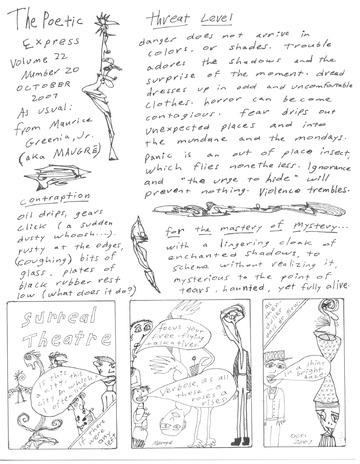 The Poetic
Express
Volume 22
Number 20
October
2007
As usual:
from Maurice
Greenia, Jr.
(aka MAUGRÉ)
Threat Level
danger does not arrive in
colors. or shades. trouble
adores the shadows and the
surprise of the moment. dread
dresses up in odd and uncomfortable
clothes. horror can become
contagious. fear drips our
unexpected places and into
the mundane and the mondays.
panic is an out of place insect,
which flies nonetheless. Ignorance
and "the urge to hide" will
prevent nothing. Violence trembles.
contraption
oil drips, gears
click (a sudden
dusty whoosh...).
rusty at the edges,
(coughing) bits of
glass. plates of
black rubber rest
low (what does it do?)
for the mastery of Mystery...
with a lingering cloak of
enchanted shadows, to
scheme without realizing it,
mysterious to the point of
tears. haunted, yet fully alive.
Surreal
Theatre
is this the
city, this
which
there
were
focus your
free-flying
talkative
verbose, as all
these in
roses a
rises
a shine
right
Oct
2007